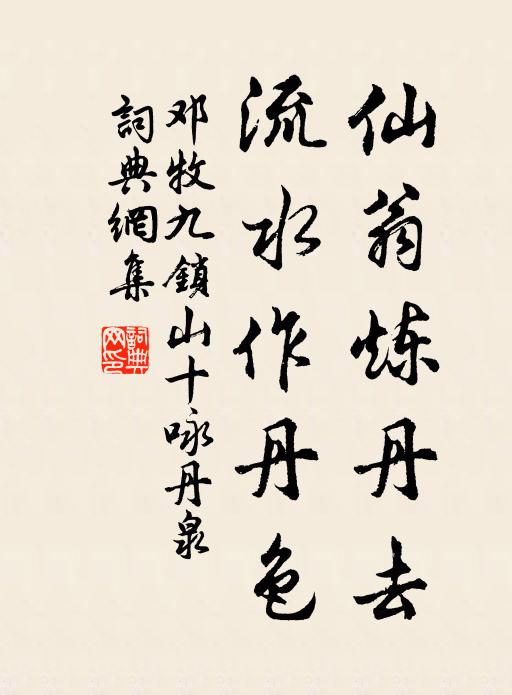 仙翁炼丹去
流水作丹色
邓牧九鎖山十咏丹泉
詞典網集
詞典网印